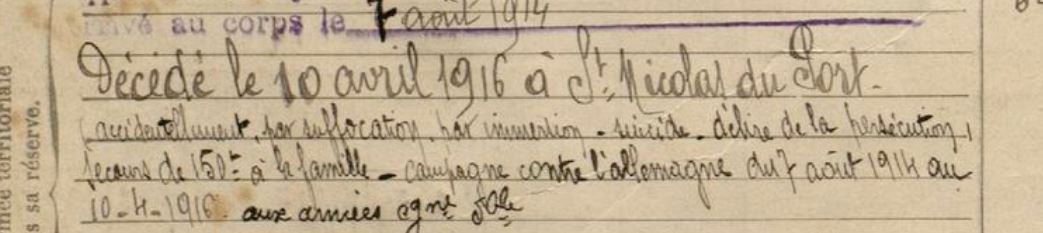 rrivé au corps le 7 août 1914
Décédé le 10 avril 1916 à St. Nicolas du Port.
(accidentellement, par suffocation, par immersion - suicide - délire de la persécution,
secours de 150f à la famille - campagne contre l'allemagne du 7 août 1914 au
10-4-1916. aux armées
s sa réserve.
territoriale